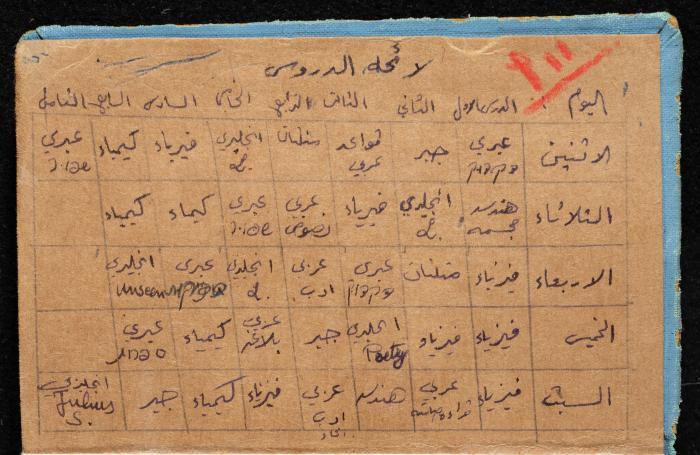 لائحة الدروس
اليوم الدرس الاول الثاني الثالث الرابع الخامس السادس السابع الثامن
الاثنين عبري דקדוק جبر قواعد عربي مثلثات انجليزي فيزياء كيمياء عبري
الثلاثاء هندسه مجسمه انجليزي فيزياء عربي نصوص عبري كيمياء كيمياء
الاربعاء فيزياء مثلثات عبري דקדוק عربي ادب انجليزي عبري انجليزي unseen
الخميس فيزياء فيزياء انجليزي Poetry جبر عربي بلاغه كيمياء عبري
السبت فيزياء عربي هندسه عربي ادب فيزياء كيمياء جبر انجليزي Julius S.